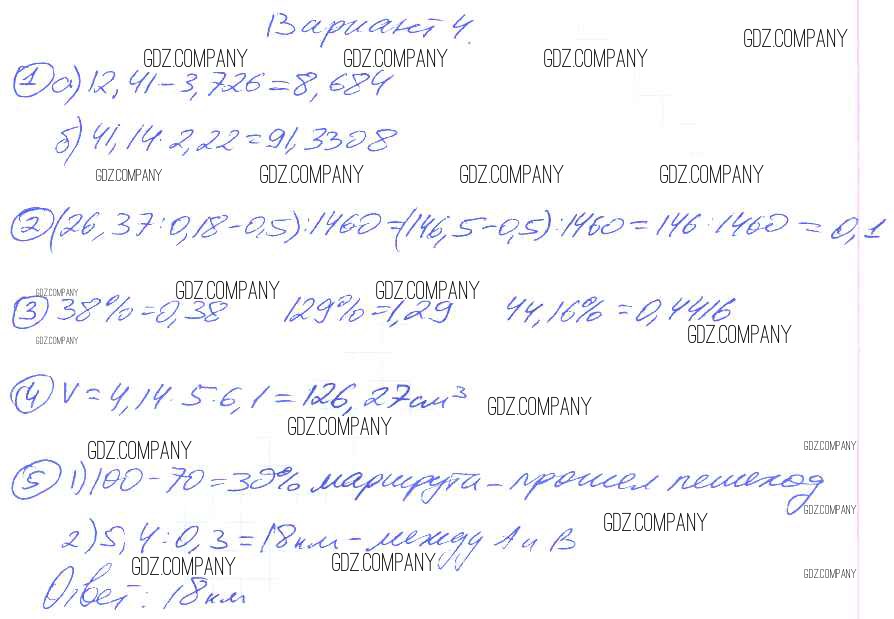 Вариант 4.
GDZ.COMPANY GDZ.COMPANY GDZ.COMPANY GDZ.COMPANY
1 а) 12,41 - 3,726 = 8,684
б) 41,14 · 2,22 = 91,3308
GDZ.COMPANY GDZ.COMPANY GDZ.COMPANY GDZ.COMPANY
2 (26,37 : 0,18 - 0,5) : 1460 = (146,5 - 0,5) : 1460 = 146 : 1460 = 0,1
GDZ.COMPANY GDZ.COMPANY GDZ.COMPANY
3 38% = 0,38 129% = 1,29 44,16% = 0,4416
GDZ.COMPANY GDZ.COMPANY
4 V = 4,14 · 5 · 6,1 = 126,27 см³
GDZ.COMPANY
GDZ.COMPANY
GDZ.COMPANY GDZ.COMPANY
5 1) 100 - 70 = 30% маршрута - прошел пешеход
GDZ.COMPANY
GDZ.COMPANY
2) 5,4 : 0,3 = 18 км - между А и В
GDZ.COMPANY GDZ.COMPANY GDZ.COMPANY
Ответ: 18 км